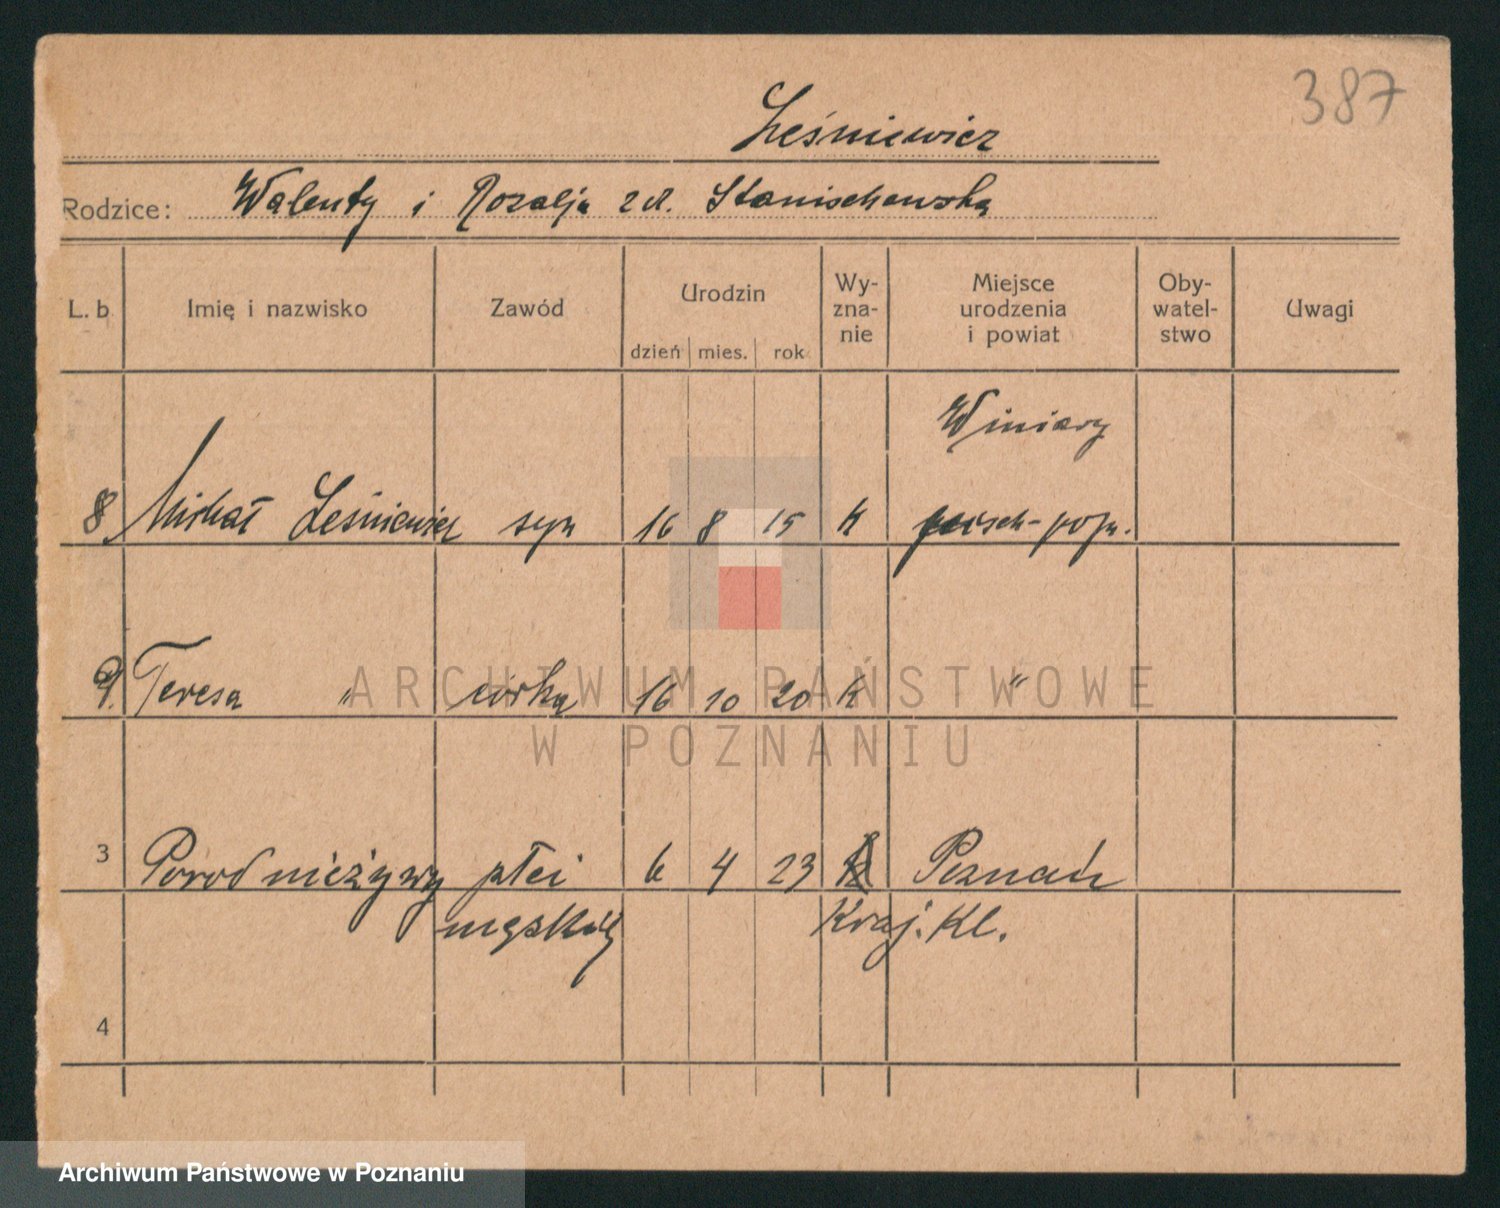 387
Leśniewicz
Rodzice: Walenty i Rozalja zd. Stanischewska
L. b Imię i nazwisko Zawód Urodzin Wy- Miejsce Oby- Uwagi
zna- urodzenia watel-
nie i powiat stwo
dzień mies. rok
Winiary
8 Michał Leśniewicz syn 16 8 15 K
9. Teresa " córka 16 10 20 K "
3 Poród nieżywy płci 6 4 23 Poznań
męskiej Kraj. Kl.
4
ARCHIWUM PAŃSTWOWE
W POZNANIU
Archiwum Państwowe w Poznaniu